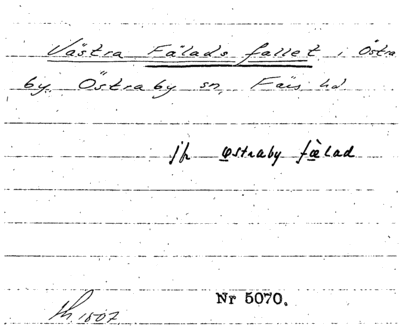 Västra Fälads fallet, Östra
by, Östraby sn, Färs hd
jfr Östraby fälad
Nr 5070.
1807